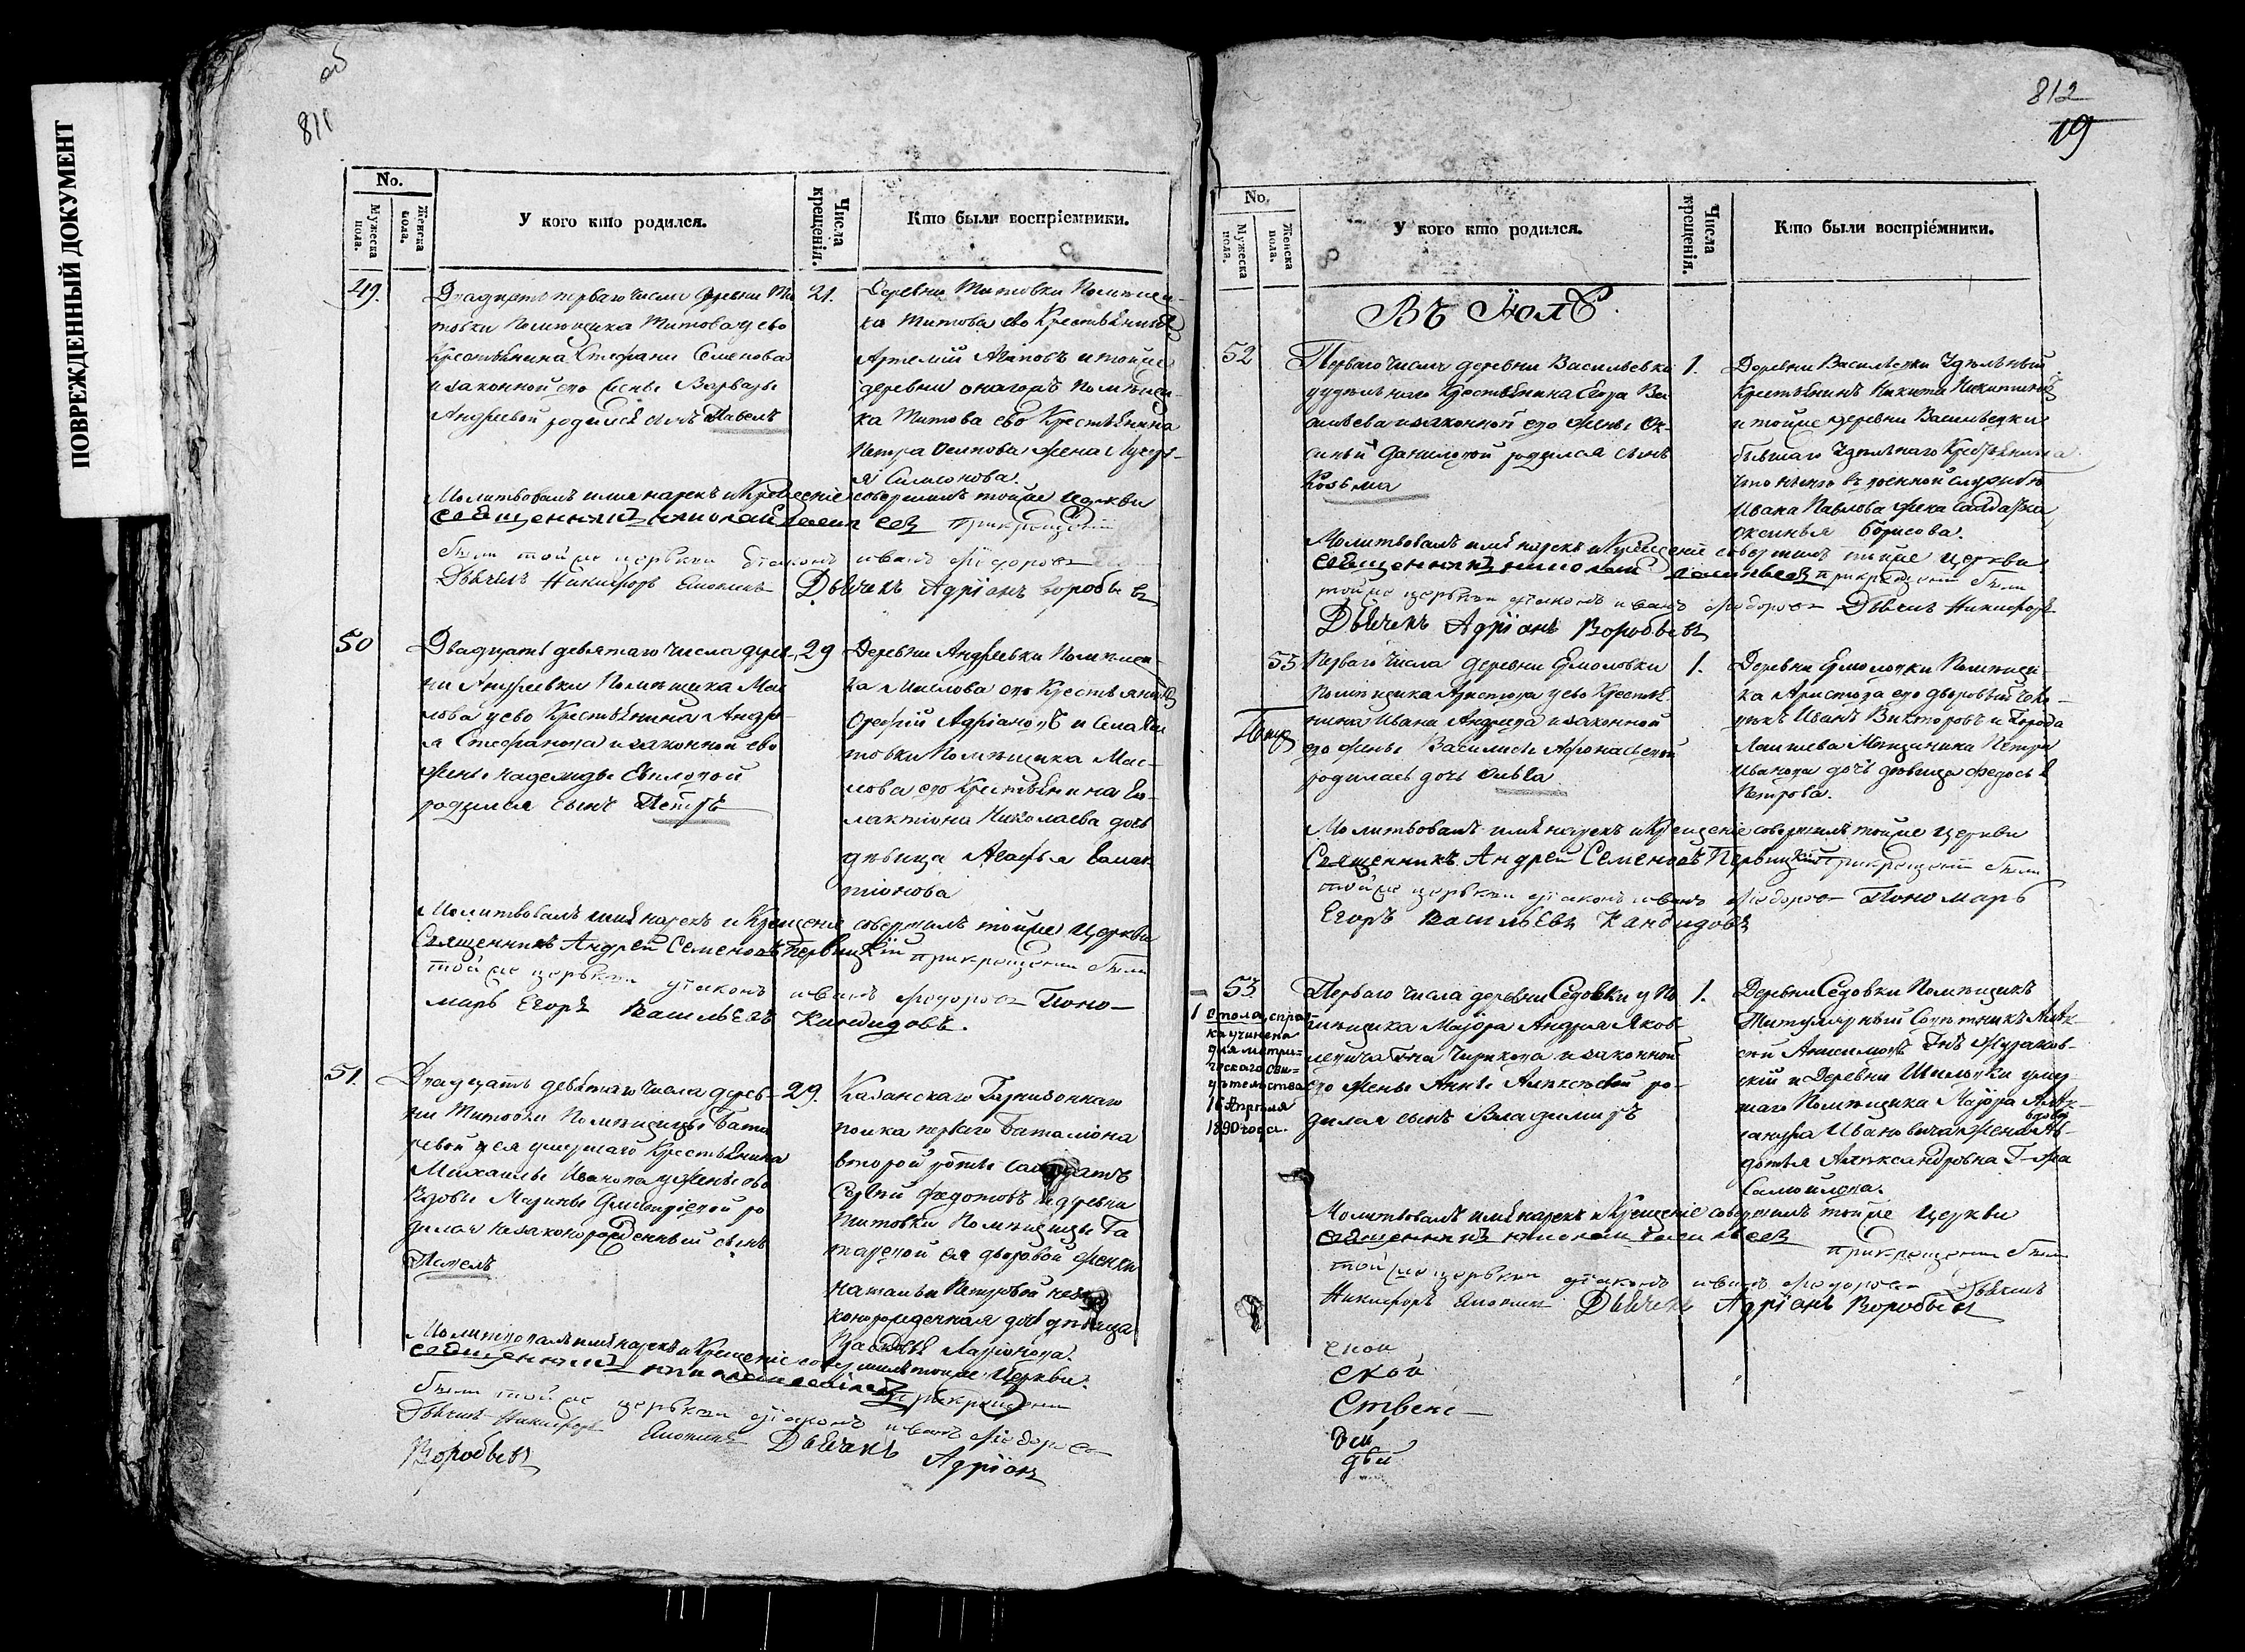 ПОВРЕЖДЕННЫЙ ДОКУМЕНТ
об
811
No.
Мужеска пола.
Женска пола.
У кого кто родился.
Числа крещенія.
Кто были воспріемники.
49.
Двадцать перваго числа деревни Ти
товки Помѣщика Титова у ево
Крестьянина Стефана Семенова
и законной его жены Варвары
Андреевой родился сынъ Павелъ
21.
Деревни Титовки Помѣщи-
ка Титова ево Крестьянинъ
Артемій Агаповъ и тойже
деревни онагожъ Помѣщи-
ка Титова ево Крестьянина
Петра Осипова жена Лукер-
я Симонова.
Молитвовалъ имя нарекъ и Крещеніе совершилъ тойже Церкви
священникъ николай васильевъ при крещеніи
были тойже церькви діаконъ иванъ Ѳіодоровъ
Дьячекъ Адріанъ воробьевъ
50
Двадцать девятаго числа дерев-
ни Андреевки Помѣщика Мас
лова у ево Крестьянина Андре
я Стефанова и законной ево
жены надежды
родился сынъ Петръ
29
Деревни Андреевки Помѣщи-
ка Маслова его Крестьянинъ
Адріановъ и села Ти
товки Помѣщика Мас-
лова его Крестьянина Га-
лактіона Николаева дочь
дѣвица Агафья Галак
тіонова
Молитвовалъ имя нарекъ и Крещеніе совершилъ тойже Церкви
Священникъ Андрей Семеновъ Первицкій при крещеніи были
тойже церькви діаконъ иванъ Ѳіодоровъ Поно-
марь Егоръ Васильевъ Кандидовъ.
51.
Двадцать девятаго числа дерев-
ни Титовки Помѣщицы Тата
ревой у ея умершаго Крестьянина
Михаилы Иванова у жены ево
Вдовы Марины Дмитріевой ро
дился незаконорожденный сынъ
Павелъ
29.
Казанскаго Гарнизоннаго
полка перваго Баталіона
второй роты солдатъ
Сергѣй Федотовъ и деревни
Титовки Помѣщицы Та
таревой ея дворовой женки
Натальи Петровой неза
конорожденная дочь дѣвица
Ларіонова.
Молитвовалъ имя нарекъ и Крещеніе совершилъ тойже Церкви.
священникъ николай васильевъ при крещеніи
были тойже церькви діаконъ иванъ Ѳіодоровъ
Дьячекъ Адріанъ
Воробьевъ
812
19
No.
Мужеска пола.
Женска пола.
У кого кто родился.
Числа крещенія.
Кто были воспріемники.
Въ Іюлѣ.
52
Перваго числа деревни Васильевки
у удѣльнаго Крестьянина Егора Ва
сильева и законной его жены Ок-
синьи Даниловой родился сынъ
Козьма
1.
Деревни Васильевки Удѣльный
Крестьянинъ Никита Никитинъ
и тойже деревни Васильевки
бывшаго Удѣльнаго Крестьянина
что нынѣ въ военной службѣ
Ивана Павлова жена Салдатка
Оксинья Борисова.
Молитвовалъ имя нарекъ и Крещеніе совершилъ тойже церкви
священникъ николай васильевъ при крещеніи были
тойже церькви діаконъ иванъ Ѳіодоровъ
Дьячекъ Адріанъ Воробьевъ
55.
Перваго числа деревни Ермоловки
помѣщика Аристова у ево Крестья
нина Ивана Андреева и законной
его жены Василисы Афонасьевой
родилась дочь Ольга
1.
Деревни Ермоловки Помѣщи-
ка Аристова его дворовый чело-
векъ Иванъ Викторовъ и Города
Лаишева Мѣщанина Петра
Иванова дочь дѣвица Федосья
Петрова.
Молитвовалъ имя нарекъ и Крещеніе совершилъ тойже церкви
Священникъ Андрей Семеновъ Первицкій при крещеніи были
тойже церькви діаконъ иванъ Ѳіодоровъ Пономарь
Егоръ Васильевъ Кандидовъ
53.
1 стола, спра-
ка учинена
для метри=
ческаго сви=
дѣтельства
16 Апрѣля
1890 года.
Перваго числа деревни Седовки у По
мѣщика Маіора Андрея Яков-
левича Чирикова и законной
его жены Анны Алексѣевой ро-
дился сынъ Владимиръ
1.
Деревни Седовки Помѣщикъ
Титулярный Совѣтникъ Алек-
сѣй Анисимовъ Гнъ Жудаков-
скій и Деревни умер-
шаго Помѣщика Маіора Алек-
сандра Ивановича жена вдова Ав-
дотья Александровна Г-жа
Самойлова.
Молитвовалъ имя нарекъ и Крещеніе совершилъ тойже церкви
священникъ николай васильевъ при крещеніи были
тойже церькви діаконъ иванъ Ѳіодоровъ
Дьячекъ Адріанъ Воробьевъ
ской
ской
Ственс-